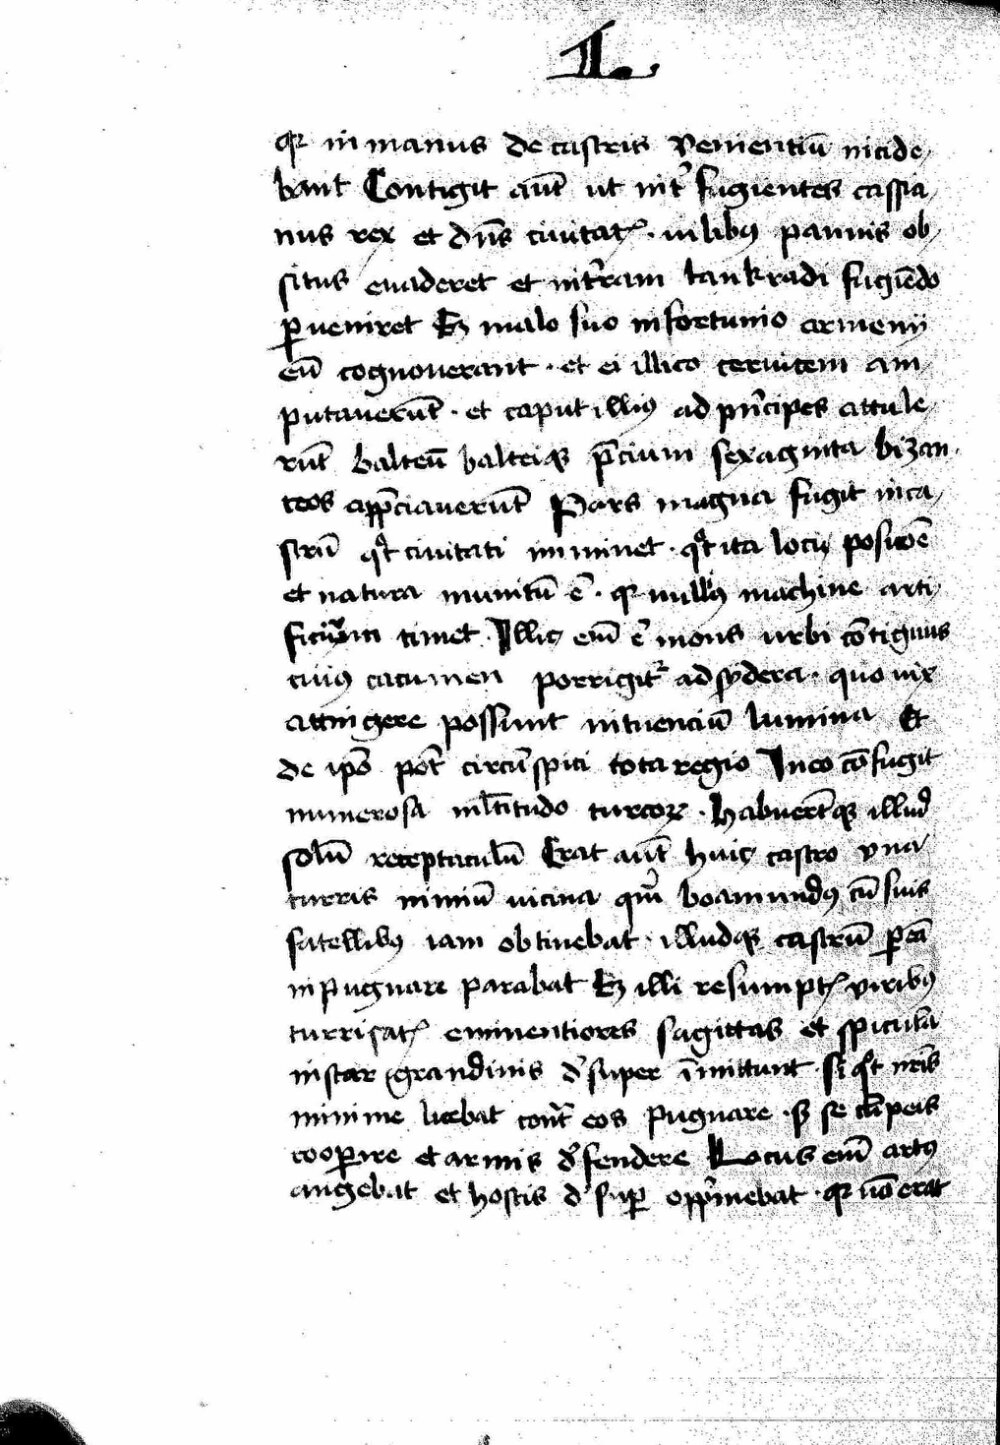 II.
qr in manus de castris venienciū incide
bant Contigit aūt ut int' fugientes cassia
nus rex et dn̄s ciuitat. uilibꝰ pannis ob
situs euaderet et in t'ram tankradi fugiēdo
ꝑueniret Sꝫ malo suo infortunio armenij
eū cognouerant. et ei illico ceruicem am
putauerūt. et caput illiꝰ ad p'ncipes attule
rūt balteū balteiqꝫ p̄cium sexaginta bizan
teos app̄ciauerūt Pars magna fugit in ca
strū qd̓ ciuitati imminet. qd̓ ita locꝰ posicōe
et natura munitū ē. qr nullꝰ machine arti
ficium timet. Illic em̄ ē mons urbi cōtiguus
cuiꝰ cacumen porrigit' ad sydera. quo vix
attingere possunt intuenciū lumina Et
de ip̄o pot' circūspici tota regio In eo cōfugit
numerosa ml̄titudo turcoꝝ. habuerūtqꝫ illud
solū receptaculū Erat aūt huic castro vna
turris nimiū uicina quā boamundꝰ cū suis
satellibꝰ iam obtinebat. illudqꝫ castrū ꝑ eā
inpugnare parabat Sꝫ illi resumpt. viribꝰ
turris at. eminentiores sagittas et spicula
instar grandinis d'super īmittunt. Sꝫ qd̓ nr̄is
minime licebat cont̄ eos pugnare. sꝫ se clipeis
cooꝑire et armis d'fendere Locus em̄ artꝰ
angebat et hostis d'suꝑ opp'mebat. qr nō erat